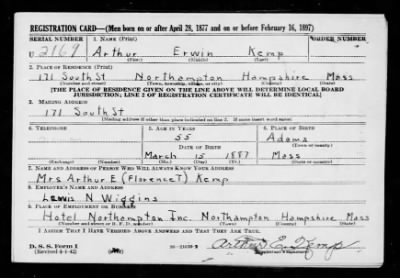 REGISTRATION CARD—(Men born on or after April 28, 1877 and on or before February 16, 1897)
SERIAL NUMBER 1. NAME (Print) ORDER NUMBER
U 2169 Arthur Erwin Kemp
(First) (Middle) (Last)
2. PLACE OF RESIDENCE (Print)
171 South St Northampton Hampshire Mass
(Number and street) (Town, township, village, or city) (County) (State)
[THE PLACE OF RESIDENCE GIVEN ON THE LINE ABOVE WILL DETERMINE LOCAL BOARD
JURISDICTION; LINE 2 OF REGISTRATION CERTIFICATE WILL BE IDENTICAL]
3. MAILING ADDRESS
171 South St
[Mailing address if other than place indicated on line 2. If same insert word same]
4. TELEPHONE 5. AGE IN YEARS 6. PLACE OF BIRTH
55 Adams
DATE OF BIRTH (Town or county)
March 15 1887 Mass
(Exchange) (Number) (Mo.) (Day) (Yr.) (State or country)
7. NAME AND ADDRESS OF PERSON WHO WILL ALWAYS KNOW YOUR ADDRESS
Mrs Arthur E (Florence T) Kemp
8. EMPLOYER'S NAME AND ADDRESS
Lewis N Wiggins
9. PLACE OF EMPLOYMENT OR BUSINESS
Hotel Northampton Inc. Northampton Hampshire Mass
(Number and street or R. F. D. number) (Town) (County) (State)
I AFFIRM THAT I HAVE VERIFIED ABOVE ANSWERS AND THAT THEY ARE TRUE.
D. S. S. Form 1
(Revised 4-1-42) Arthur E. Kemp